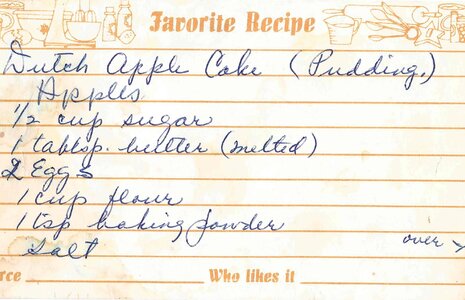 Favorite Recipe
Dutch Apple Cake (Pudding.)
Apples
1/2 cup sugar
1 tablsp. butter (melted)
2 Eggs
1 cup flour
1 tsp baking powder
Salt
over
rce Who likes it